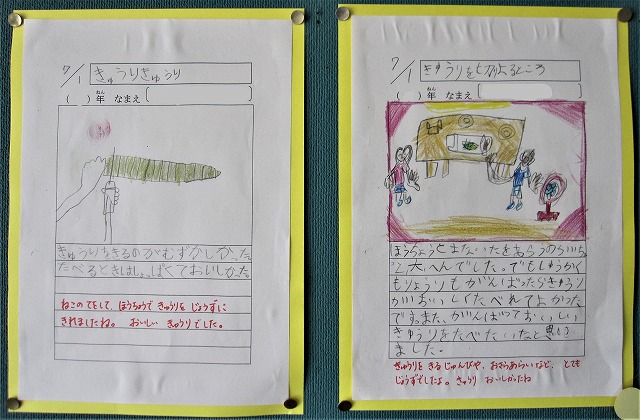 7/1
きゅうりきゅうり
( )年 なまえ
ねん
きゅうりをきるのがむずかしかった。
たべるときはしょっぱくておいしかった。
ねこのてをして、ほうちょうで きゅうりを じょうずに
きれましたね。 おいしい きゅうりでした。
7/1
きゅうりを
ところ
( )年 なまえ
ねん
ほうちょうとまないたをあらうのがいち
大へんでした。でもしゅうかく
もりょうりもがんばったらきゅうり
がおいしくてたべれてよかった
です。また、がんばっておいしい
きゅうりをたべたいなと思い
ました。
きゅうりを きる じゅんびや、おさらあらいなど、とても
じょうずでしたよ。きゅうり おいしかったね